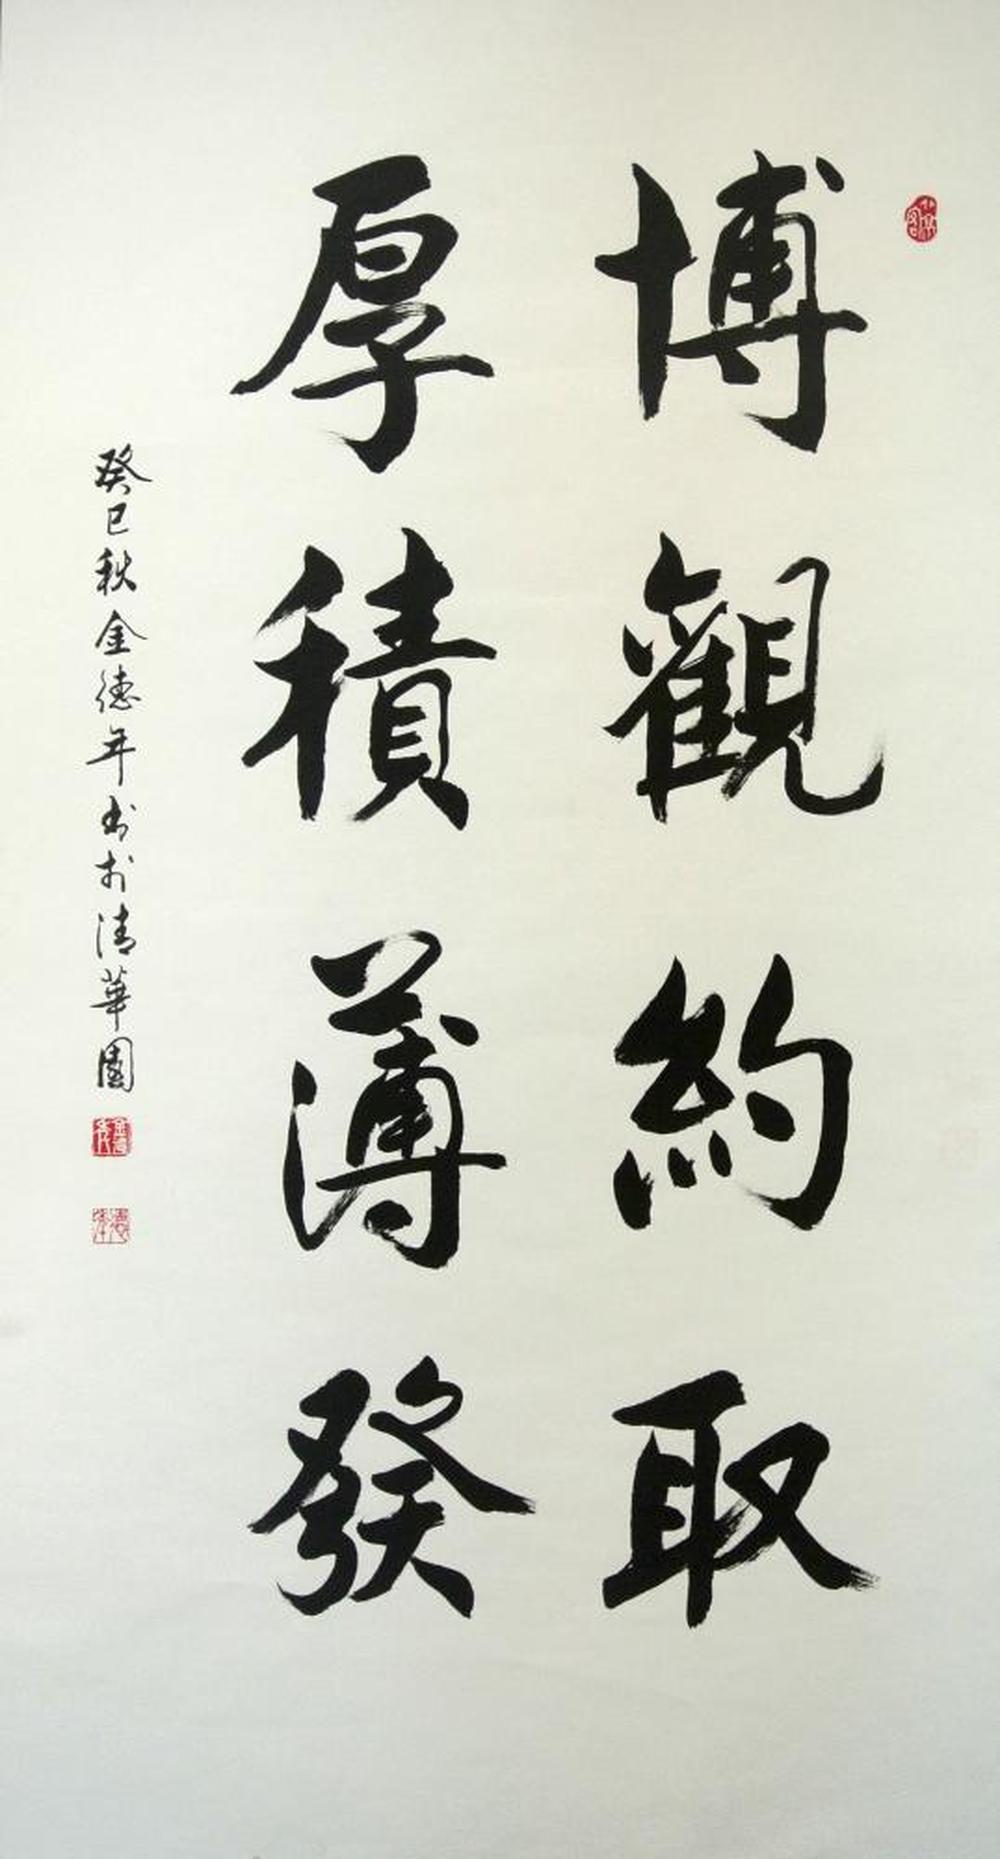 博觀約取
厚積薄發
癸巳秋金德年书於清華園